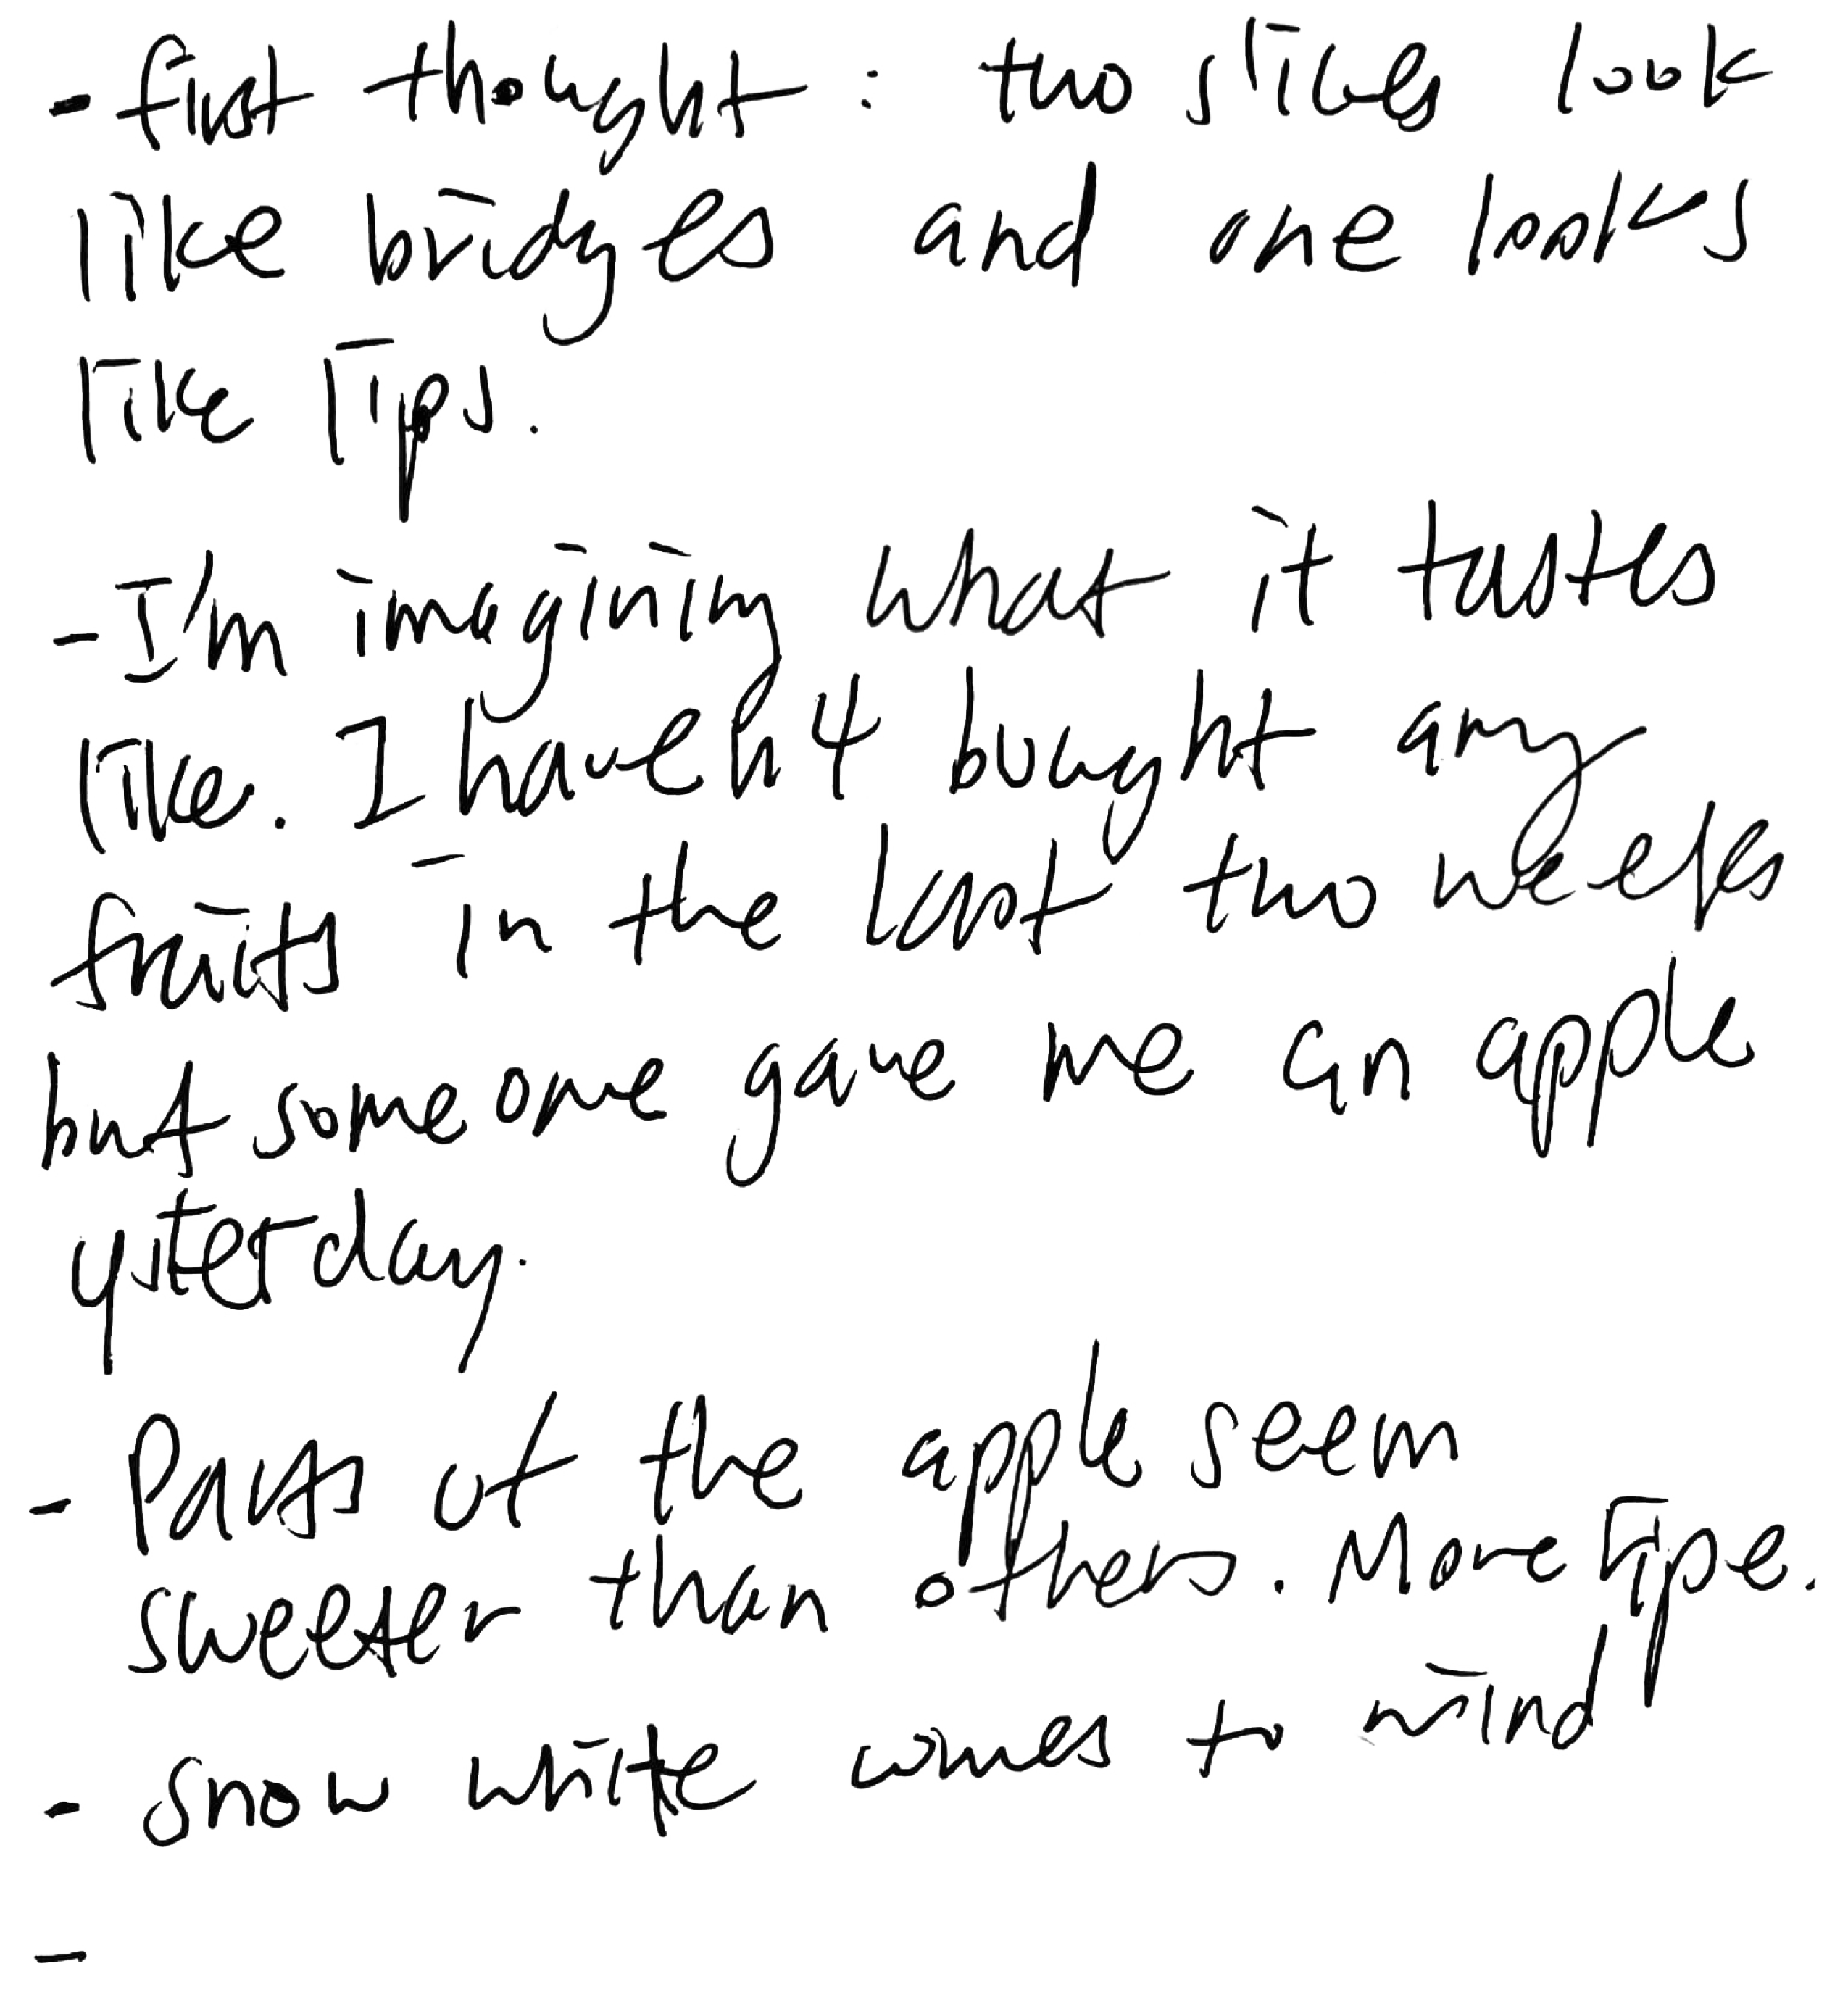 - first thought : two slices look
like bridges and one looks
like lips.
- I'm imagining what it tastes
like. I haven't bought any
fruits in the last two weeks
but someone gave me an apple
ysterday.
- Parts of the apple seem
sweeter than others. More ripe.
- snow white comes to mind
-